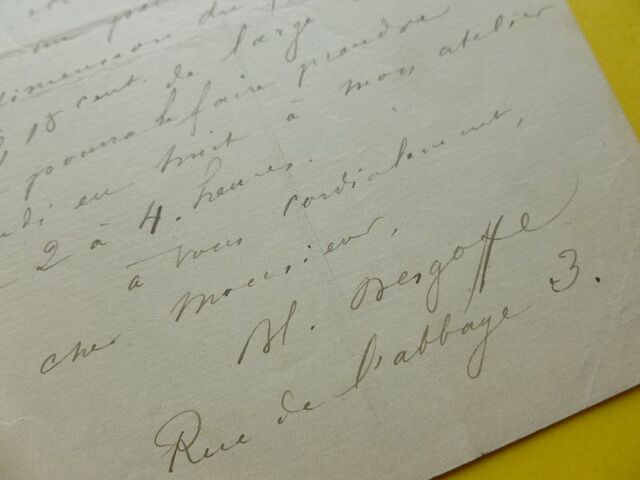 dimension du
18 cent. de large
pourra le faire prendre
en huit à mon atelier
2 à 4. heures.
à vous cordialement,
cher Monsieur,
Bl. Desgoffe
Rue de l'abbaye 3.